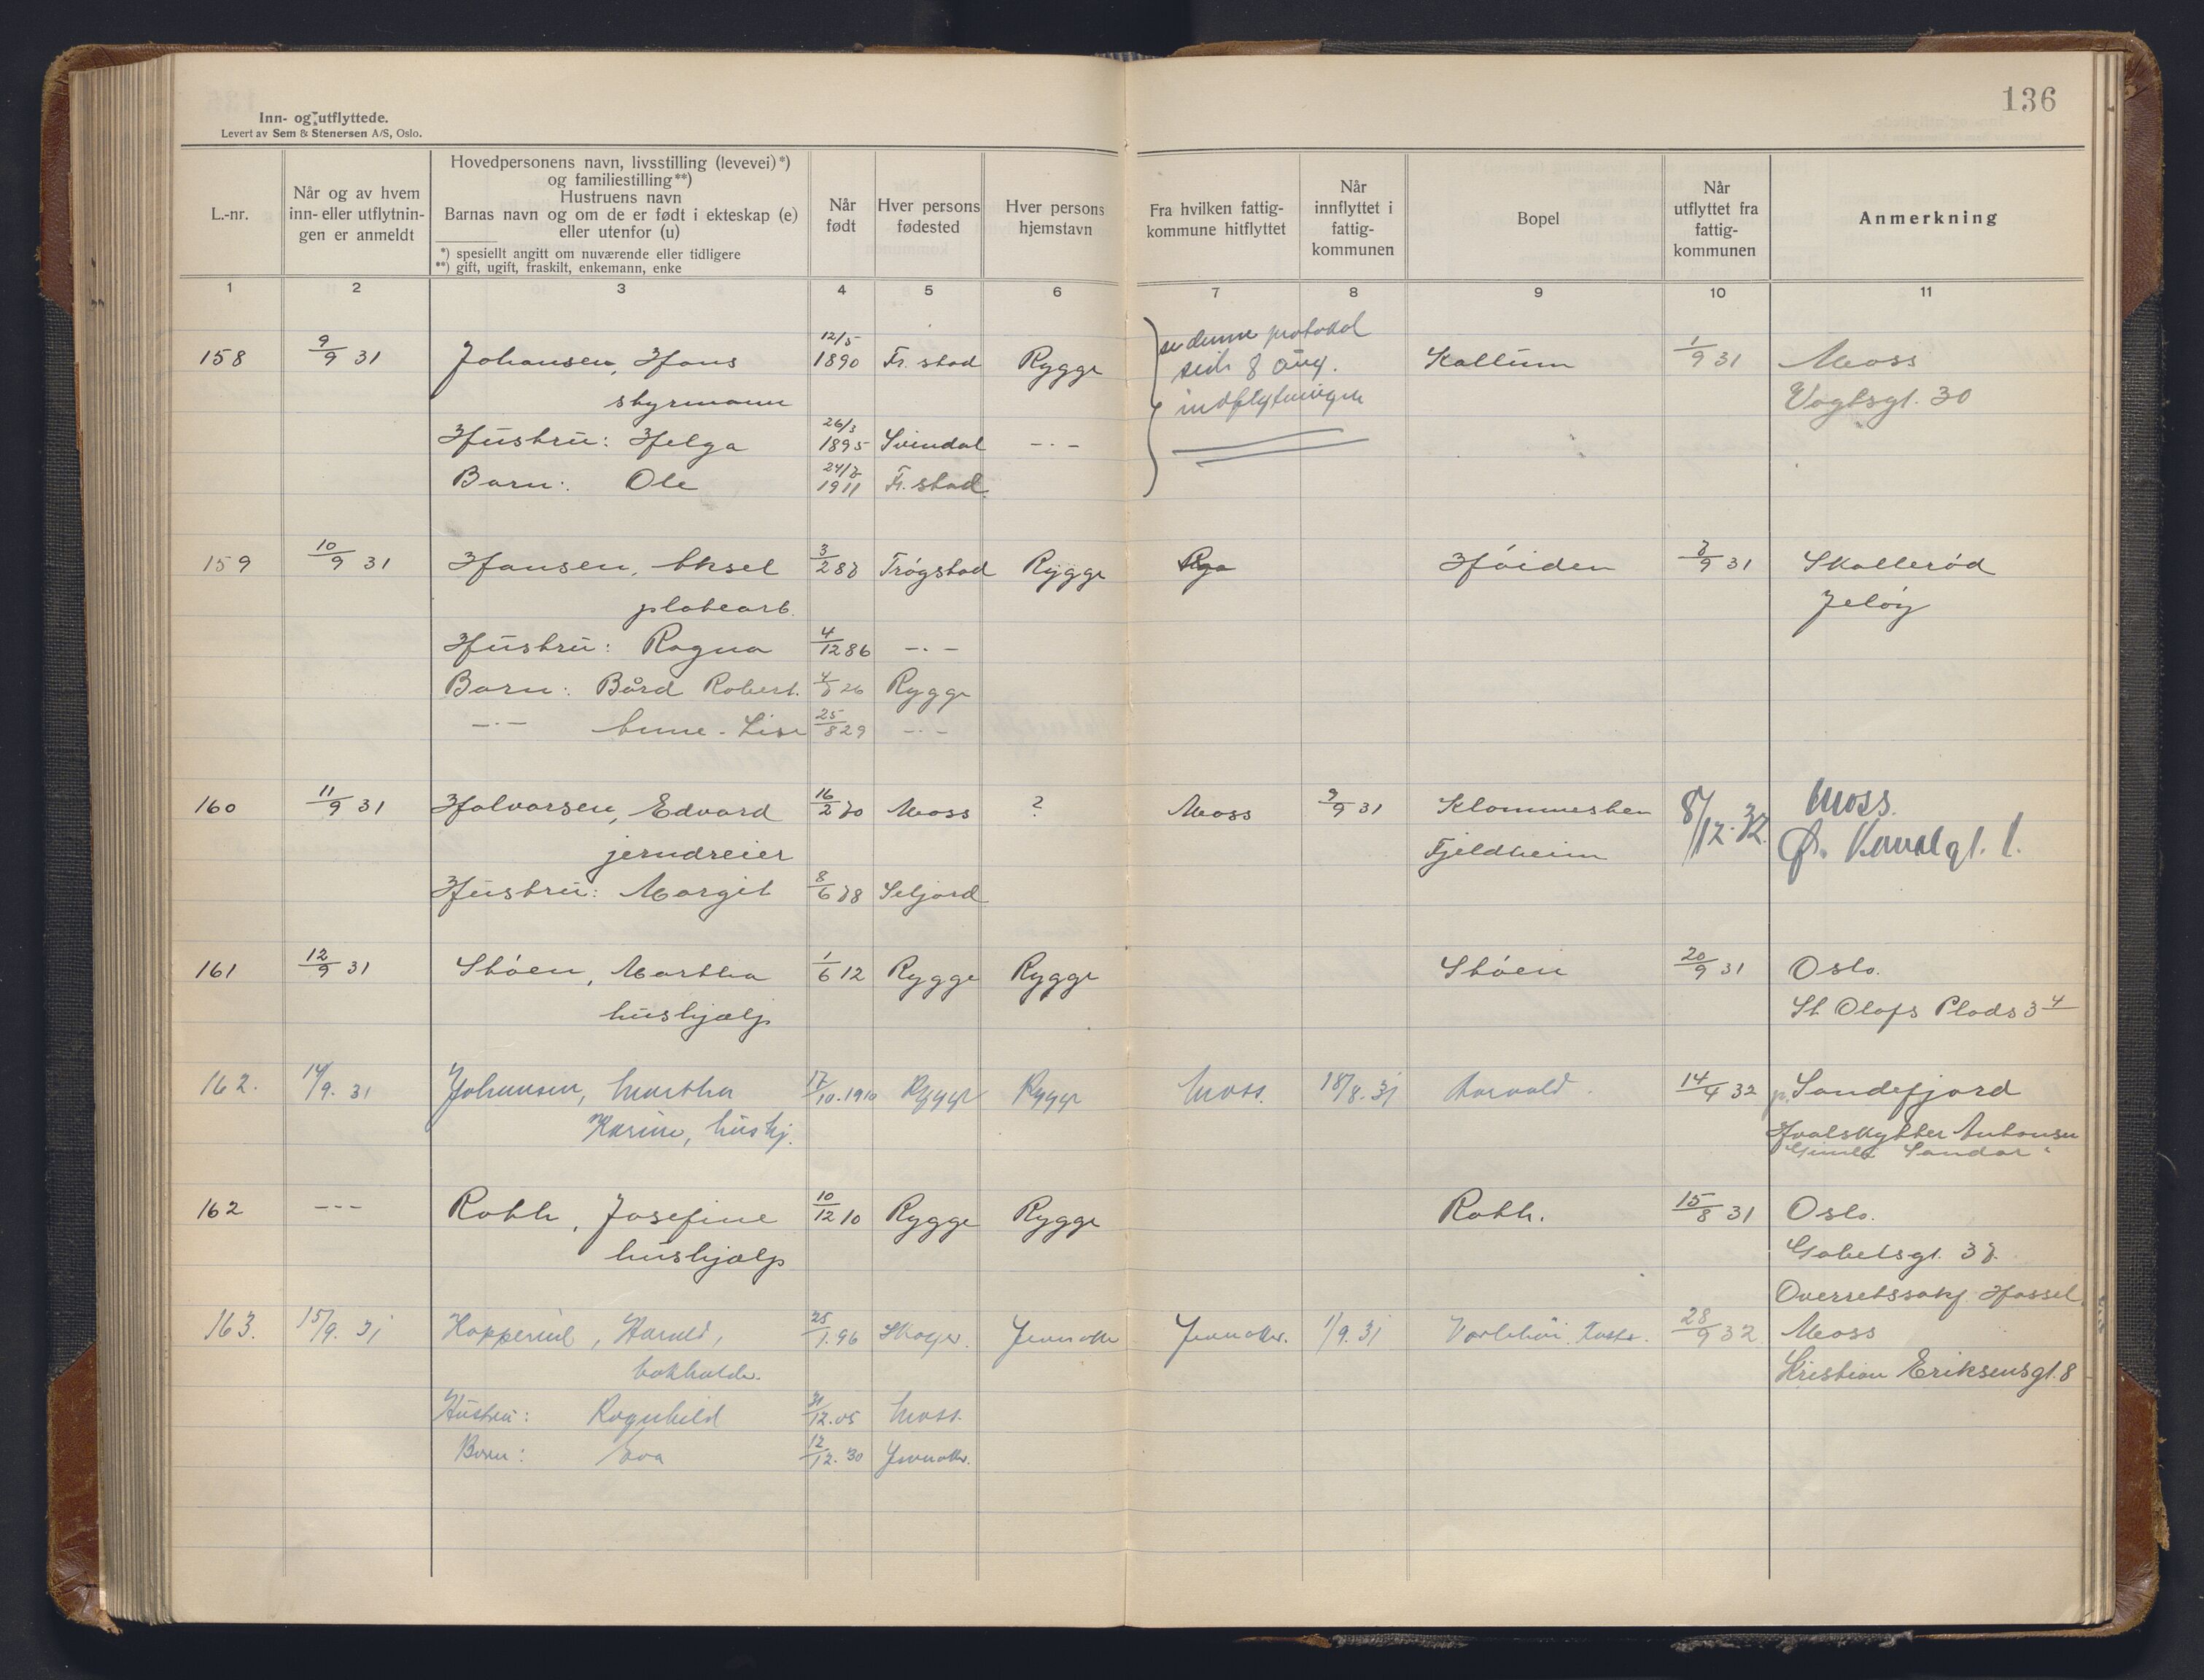 136
Inn- og utflyttede.
Levert av Sem & Stenersen A/S, Oslo.
L.-nr.
Når og av hvem
inn- eller utflytnin-
gen er anmeldt
Hovedpersonens navn, livsstilling (levevei) *)
og familiestilling **)
Hustruens navn
Barnas navn og om de er født i ekteskap (e)
eller utenfor (u)
*) spesielt angitt om nuværende eller tidligere
**) gift, ugift, fraskilt, enkemann, enke
Når
født
Hver persons
fødested
Hver persons
hjemstavn
Fra hvilken fattig-
kommune hitflyttet
Når
innflyttet i
fattig-
kommunen
Bopel
Når
utflyttet fra
fattig-
kommunen
Anmerkning
1 2 3 4 5 6 7 8 9 10 11
158 9/9 31 Johansen, Hans 12/5 1890 Fr. stad Rygge se denne protokol Kallum 1/9 31 Moss
styrmann side 8 ang. Vogtsgt. 30
indflytningen
Hustru: Helga 26/3 1895 Svindal -·-
Barn: Ole 24/7 1911 Fr. stad
159 10/9 31 Hansen, Aksel 3/2 87 Trøgstad Rygge Høiden 7/9 31 Skallerød
platearb. Jeløy
Hustru: Ragna 4/12 86 -·-
Barn: Bård Robert. 26 Rygge
-·- Anne-Lise 25/8 29 -·-
160 11/9 31 Halvorsen, Edvard 16/2 70 Moss ? Moss 9/9 31 Klommesten 8/12.32 Moss.
jerndreier Fjeldheim Ø. Kanalgt. 1.
Hustru: Margit 8/6 78 Seljord
161 12/9 31 Støen, Martha 1/6 12 Rygge Rygge Støen 20/9 31 Oslo.
hushjælp St Olafs Plads 3 4
162. 14/9. 31 Johansen, Martha 17/10.1910 Rygge Rygge Moss. 18/8.31 Aarvold. 14/4 32 p. Sandefjord
Karine, hushj. Hvalskytter Antonsen
Gimle Sandar
162 --- Roth, Josefine 10/12 10 Rygge Rygge Roth. 15/8 31 Oslo.
hushjælp Gabelsgt. 37.
Overretssakf. Hassel
163. 15/9. 31 Kopperud, Harald, 25/1.96 Skoger. Jevnaker Jevnaker. 1/9.31 28/9 32 Moss
bokholder. Kristian Eriksensgt. 8
Hustru: Ragnhild 31/12.05 Moss.
Barn: Eva 12/12.30 Jevnaker.